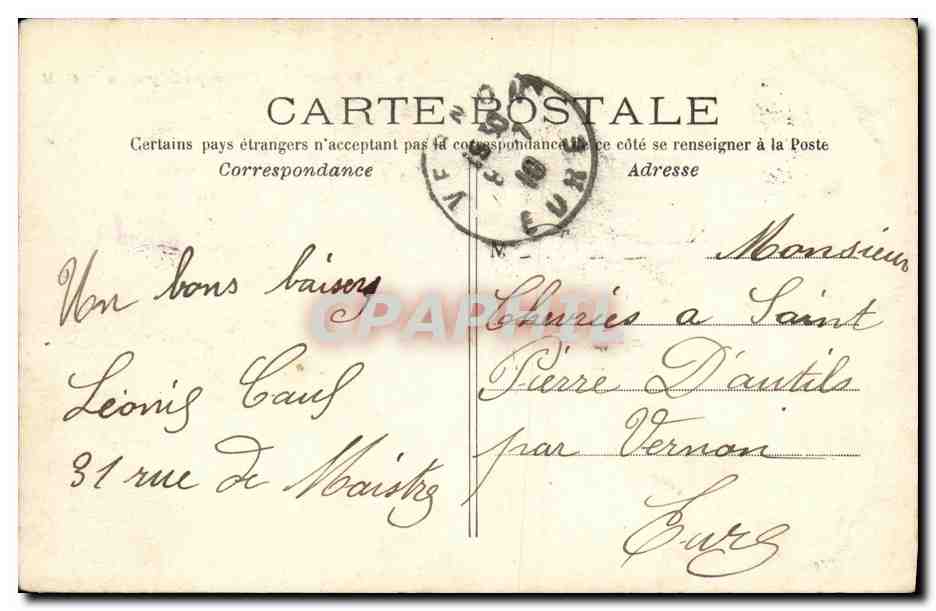 CARTE POSTALE
Certains pays étrangers n'acceptant pas la correspondance de ce côté se renseigner à la Poste
Correspondance
Adresse
VERNON
EURE
M
Un bons baisers
Léonis
31 rue de Maistre
Monsieur
Chevries a Saint
Pierre D'autils
par Vernon
Eure
CPAPHIL